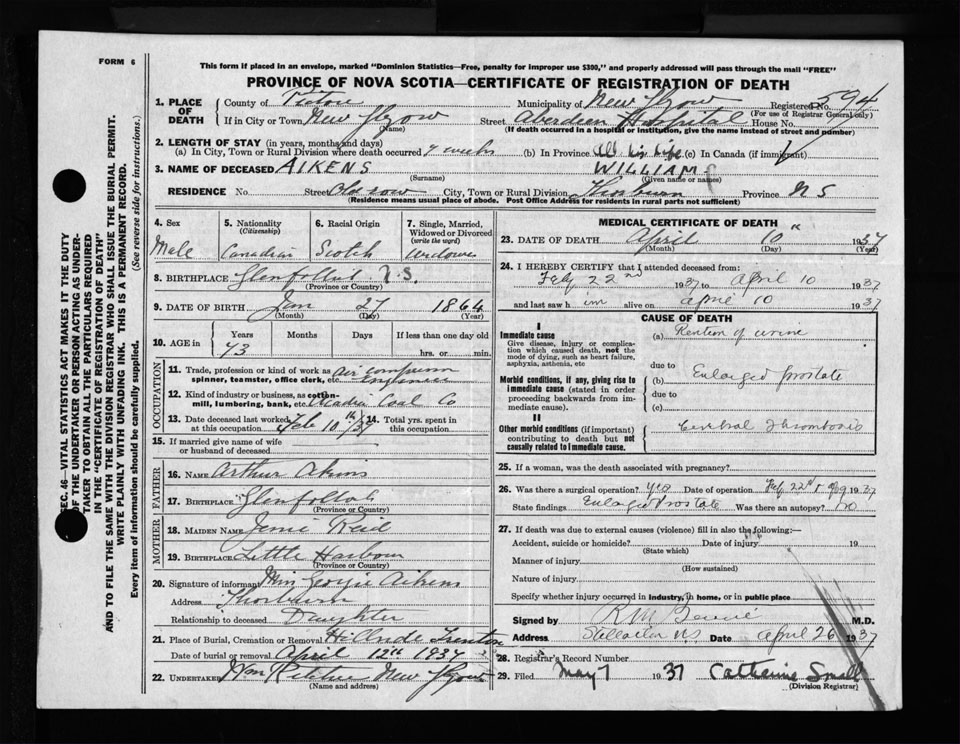 FORM 6
This form if placed in an envelope, marked "Dominion Statistics—Free, penalty for improper use $300," and properly addressed will pass through the mail "FREE"
PROVINCE OF NOVA SCOTIA—CERTIFICATE OF REGISTRATION OF DEATH
1. PLACE OF DEATH
County of Pictou Municipality of New Glasgow Registered No. 594
(For use of Registrar General only)
If in City or Town New Glasgow Street Aberdeen Hospital House No.
(Name) (If death occurred in a hospital or institution, give the name instead of street and number)
2. LENGTH OF STAY (in years, months and days)
(a) In City, Town or Rural Division where death occurred 7 weeks (b) In Province All his life (c) In Canada (if immigrant)
3. NAME OF DECEASED AIKENS WILLIAM
(Surname) (Given name or names)
RESIDENCE No. Street Old row City, Town or Rural Division Thorburn Province N S
(Residence means usual place of abode. Post Office Address for residents in rural parts not sufficient)
4. Sex
Male
5. Nationality (Citizenship)
Canadian
6. Racial Origin
Scotch
7. Single, Married, Widowed or Divorced (write the word)
Widower
8. BIRTHPLACE N.S.
(Province or Country)
9. DATE OF BIRTH Jan 27 1864
(Month) (Day) (Year)
10. AGE in
Years Months Days If less than one day old
73 hrs. or min.
OCCUPATION
11. Trade, profession or kind of work as spinner, teamster, office clerk, etc. Air engineer
12. Kind of industry or business, as cotton-mill, lumbering, bank, etc. Acadia Coal Co
13. Date deceased last worked at this occupation Feb 10th/37
14. Total yrs. spent in this occupation.
15. If married give name of wife or husband of deceased
FATHER
16. NAME Arthur Akins
17. BIRTHPLACE
(Province or Country)
MOTHER
18. MAIDEN NAME Reid
19. BIRTHPLACE Little Harbour
(Province or Country)
20. Signature of informant Aikens
Address Thorburn
Relationship to deceased Daughter
21. Place of Burial, Cremation or Removal Hillside Trenton
Date of burial or removal April 12th 1937
22. UNDERTAKER New Glasgow
(Name and address)
MEDICAL CERTIFICATE OF DEATH
23. DATE OF DEATH April 10th 1937
(Month) (Day) (Year)
24. I HEREBY CERTIFY that I attended deceased from:
Feby 22nd 1937 to April 10 1937
and last saw him alive on April 10 1937
CAUSE OF DEATH
I
Immediate cause
Give disease, injury or complication which caused death, not the mode of dying, such as heart failure, asphyxia, asthenia, etc
(a) Rention of urine
due to
Morbid conditions, if any, giving rise to immediate cause (stated in order proceeding backwards from immediate cause).
(b) Enlarged prostate
due to
(c)
II
Other morbid conditions (if important) contributing to death but not causally related to immediate cause.
Cerebral Thrombosis
25. If a woman, was the death associated with pregnancy?
26. Was there a surgical operation? yes Date of operation Feby 22nd 1937
State findings Enlarged Prostate Was there an autopsy? no
27. If death was due to external causes (violence) fill in also the following:—
Accident, suicide or homicide? Date of injury 19
(State which)
Manner of injury
(How sustained)
Nature of injury
Specify whether injury occurred in industry, in home, or in public place
Signed by M.D.
Address Stellarton NS Date April 26 1937
28. Registrar's Record Number
29. Filed May 7 1937 Catherine Small
(Division Registrar)
SEC. 46—VITAL STATISTICS ACT MAKES IT THE DUTY
OF THE UNDERTAKER OR PERSON ACTING AS UNDERTAKER
TO OBTAIN ALL THE PARTICULARS REQUIRED
IN THE "CERTIFICATE OF REGISTRATION OF DEATH"
AND TO FILE THE SAME WITH THE DIVISION REGISTRAR WHO SHALL ISSUE THE BURIAL PERMIT.
WRITE PLAINLY WITH UNFADING INK. THIS IS A PERMANENT RECORD.
Every item of information should be carefully supplied. (See reverse side for instructions.)